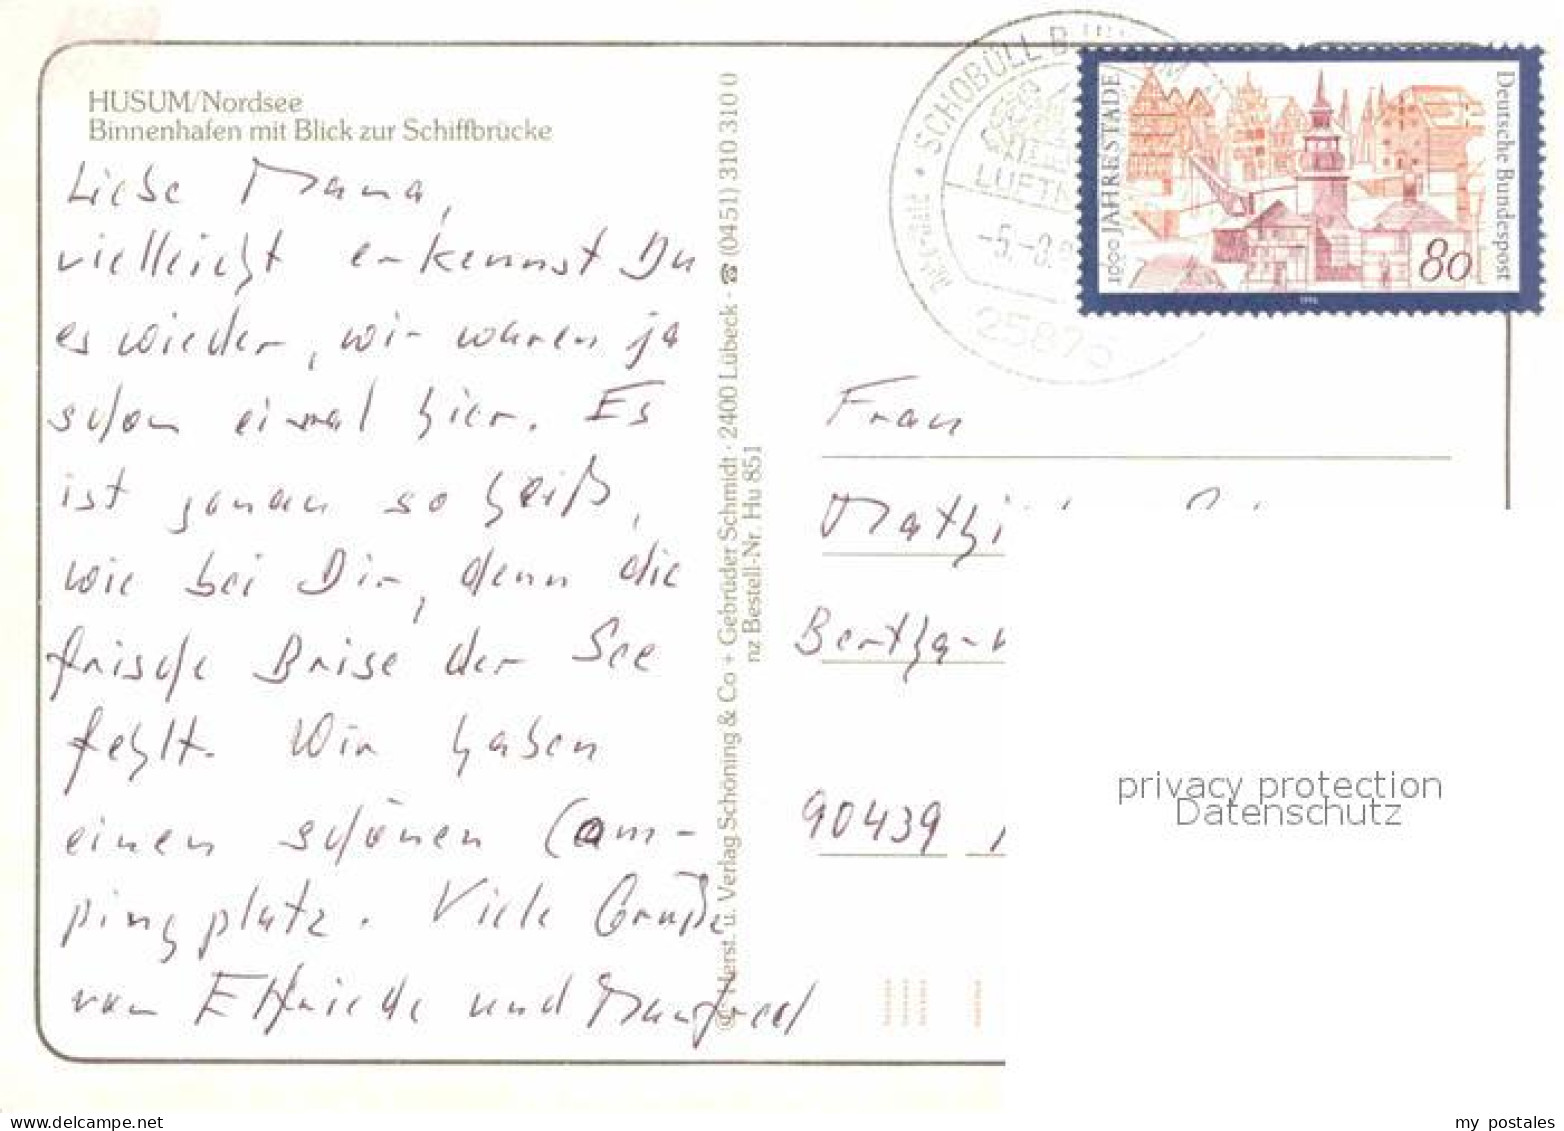 HUSUM/Nordsee
Binnenhafen mit Blick zur Schiffbrücke
Liebe Mama,
vielleicht erkennst Du
es wieder, wir waren ja
schon einmal hier. Es
ist genau so heiß,
wie bei Dir, denn die
frische Brise der See
fehlt. Wir haben
einen schönen Cam-
pingplatz. Viele Grüße
von Elfriede und Manfred
© Herst. u. Verlag Schöning & Co + Gebrüder Schmidt · 2400 Lübeck - ☎ (0451) 310 310 0
nz Bestell-Nr. Hu 851
SCHOBÜLL B
LUFTK
-5.-8.9
25875
1000 JAHRE STADE
Deutsche Bundespost
80
1994
Frau
Berta-
90439
privacy protection
Datenschutz
www.delcampe.net
my_postales